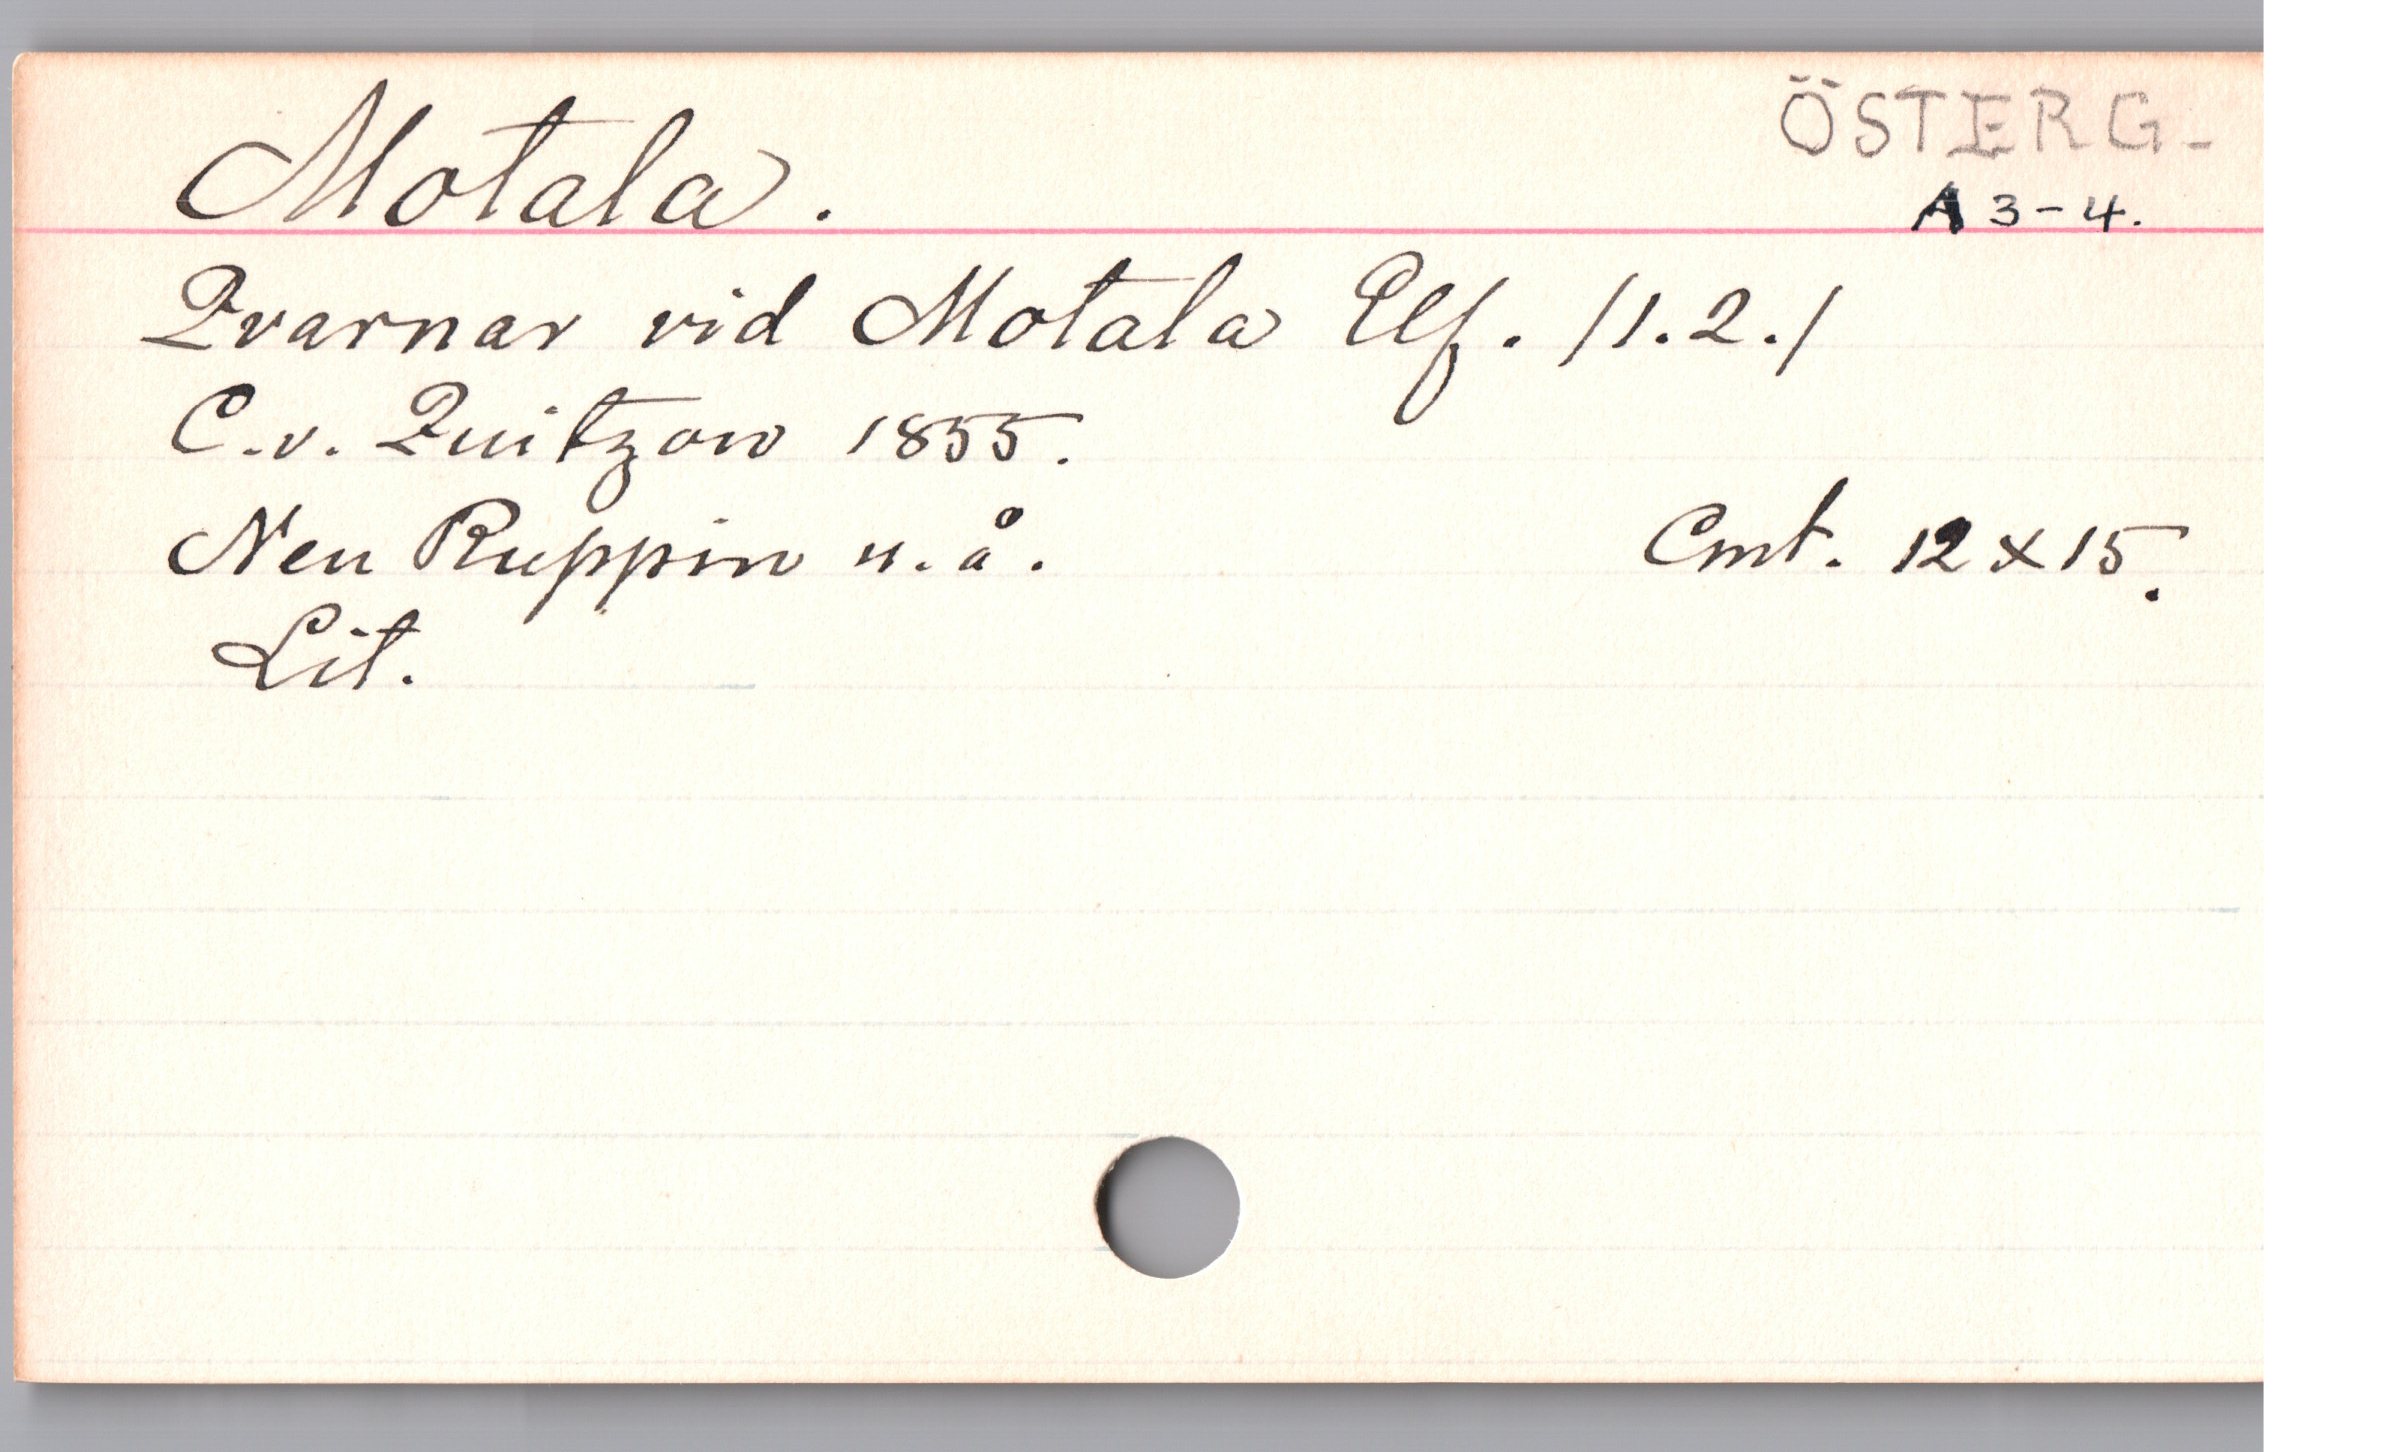 ÖSTERG.
Motala. A 3-4.
Qvarnar vid Motala Elf. /1.2./
C.v. Quitzow 1855.
Neu Ruppin u.å. Cmt. 12 x 15.
Lit.